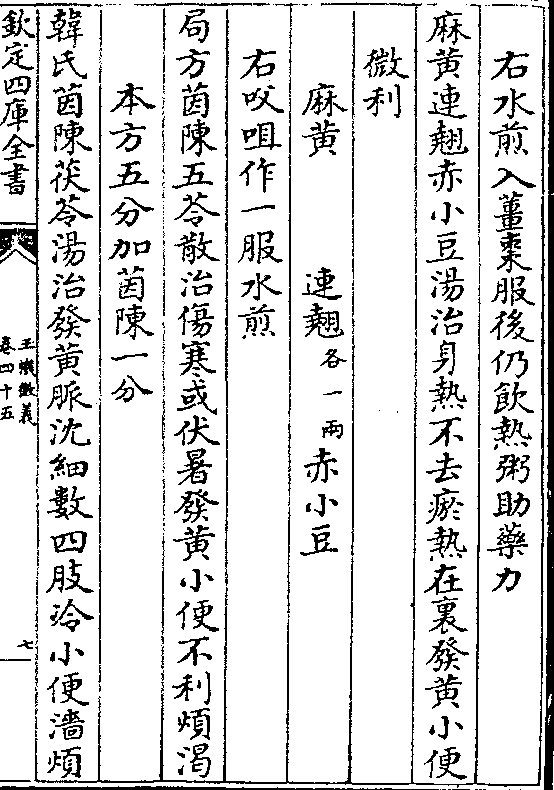 右水煎入薑棗服後仍飲熱粥助藥力
麻黄連翹赤小豆湯治身熱不去瘀熱在裏發黄小便
微利
麻黄　連翹各一兩　赤小豆
右㕮咀作一服水煎
局方茵陳五苓散治傷寒或伏暑發黄小便不利煩渴
本方五分加茵陳一分
韓氏茵陳茯苓湯治發黄脈沈細數四肢冷小便濇煩
欽定四庫全書
玉機微義
卷四十五
七